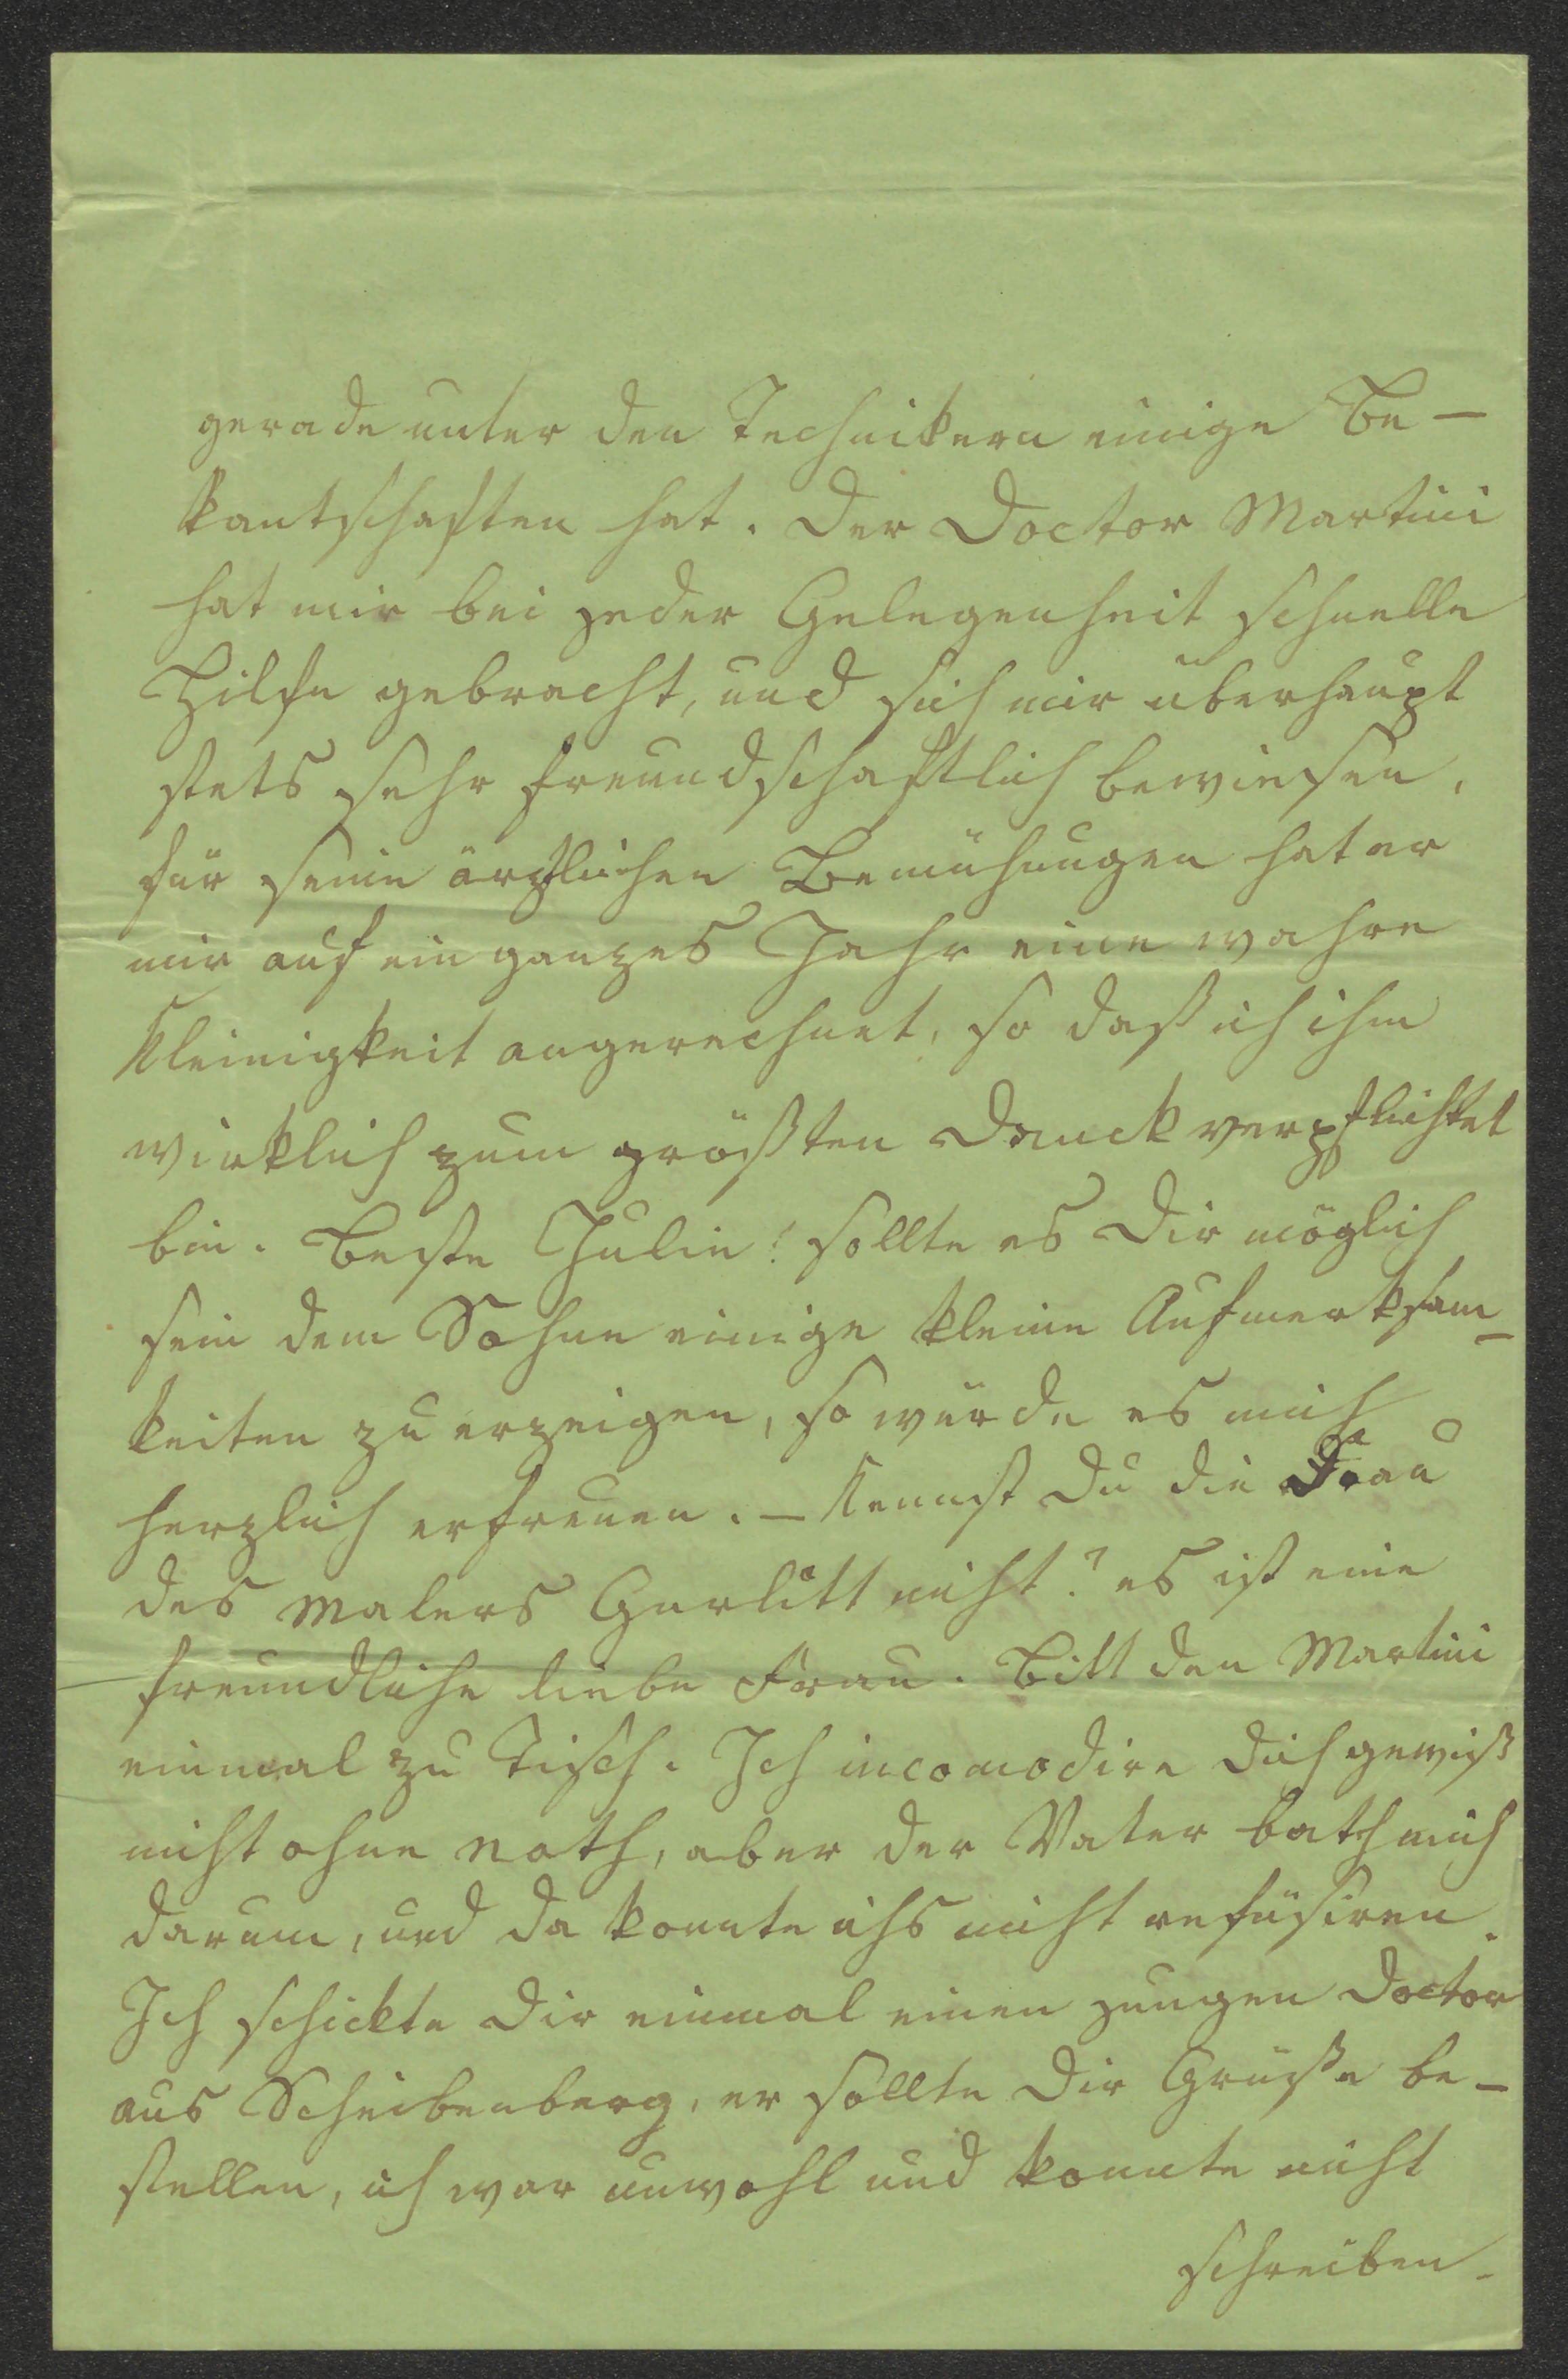 gerade unter den Technikern einige Be-
kantschaften hat. Der Doctor Martini
hat mir bei jeder Gelegenheit schnelle
Hilfe gebracht, und sich mir überhaupt
stets sehr freundschaftlich bewiesen,
für seine ärztlichen Bemühungen hat er
mir auf ein ganzes Jahr eine wahre
Kleinigkeit angerechnet, so daß ich ihm
wirklich zum größten Danck verpflichtet
bin. Beste Julie! sollte es Dir möglich
sein dem Sohne einige kleine Aufmerksam-
keiten zu erzeigen, so würde es mich
herzlich erfreuen. – Kennst Du die Frau
des Malers Gurlitt nicht? es ist eine
freundliche liebe Frau. Bitt den Martini
einmal zu Tisch. Ich incomodire Dich gewiß
nicht ohne Noth, aber der Vater bath mich
darum, und da konnte ichs nicht refüsiren.
Ich schickte Dir einmal einen jungen Doctor
aus Scheibenberg, er sollte Dir Grüße be-
stellen, ich war unwohl und konnte nicht
schreiben.